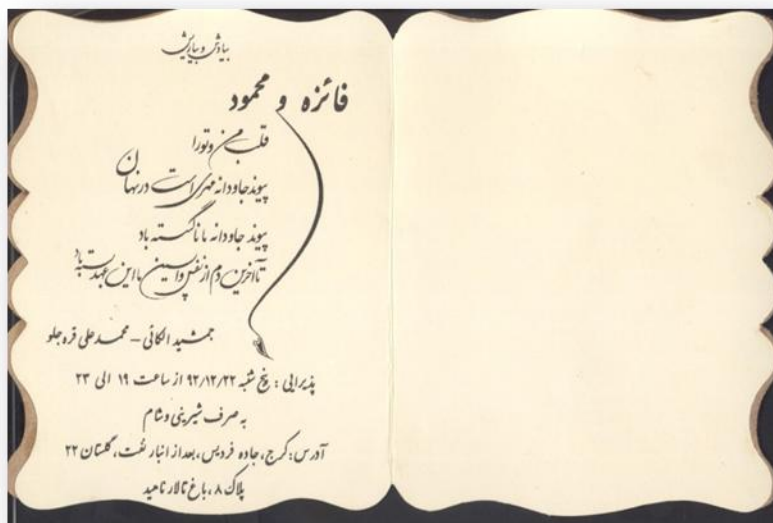 بیادش و بیاریش
فائزه و محمود
قلب من و تو را
پیوند جاودانه مهری است در نهان
پیوند جاودانه ما ناگسسته باد
تا آخرین دم از نفس واپسین ما این عهد بسته باد
جمشید الکائی - محمد علی قره جلو
پذیرایی : پنج شنبه ۹۲/۱۲/۲۲ از ساعت ۱۹ الی ۲۳
به صرف شیرینی و شام
آدرس: کرج، جاده فردیس، بعد از انبار نفت، گلستان ۲۲
پلاک ۸، باغ تالار ناهید